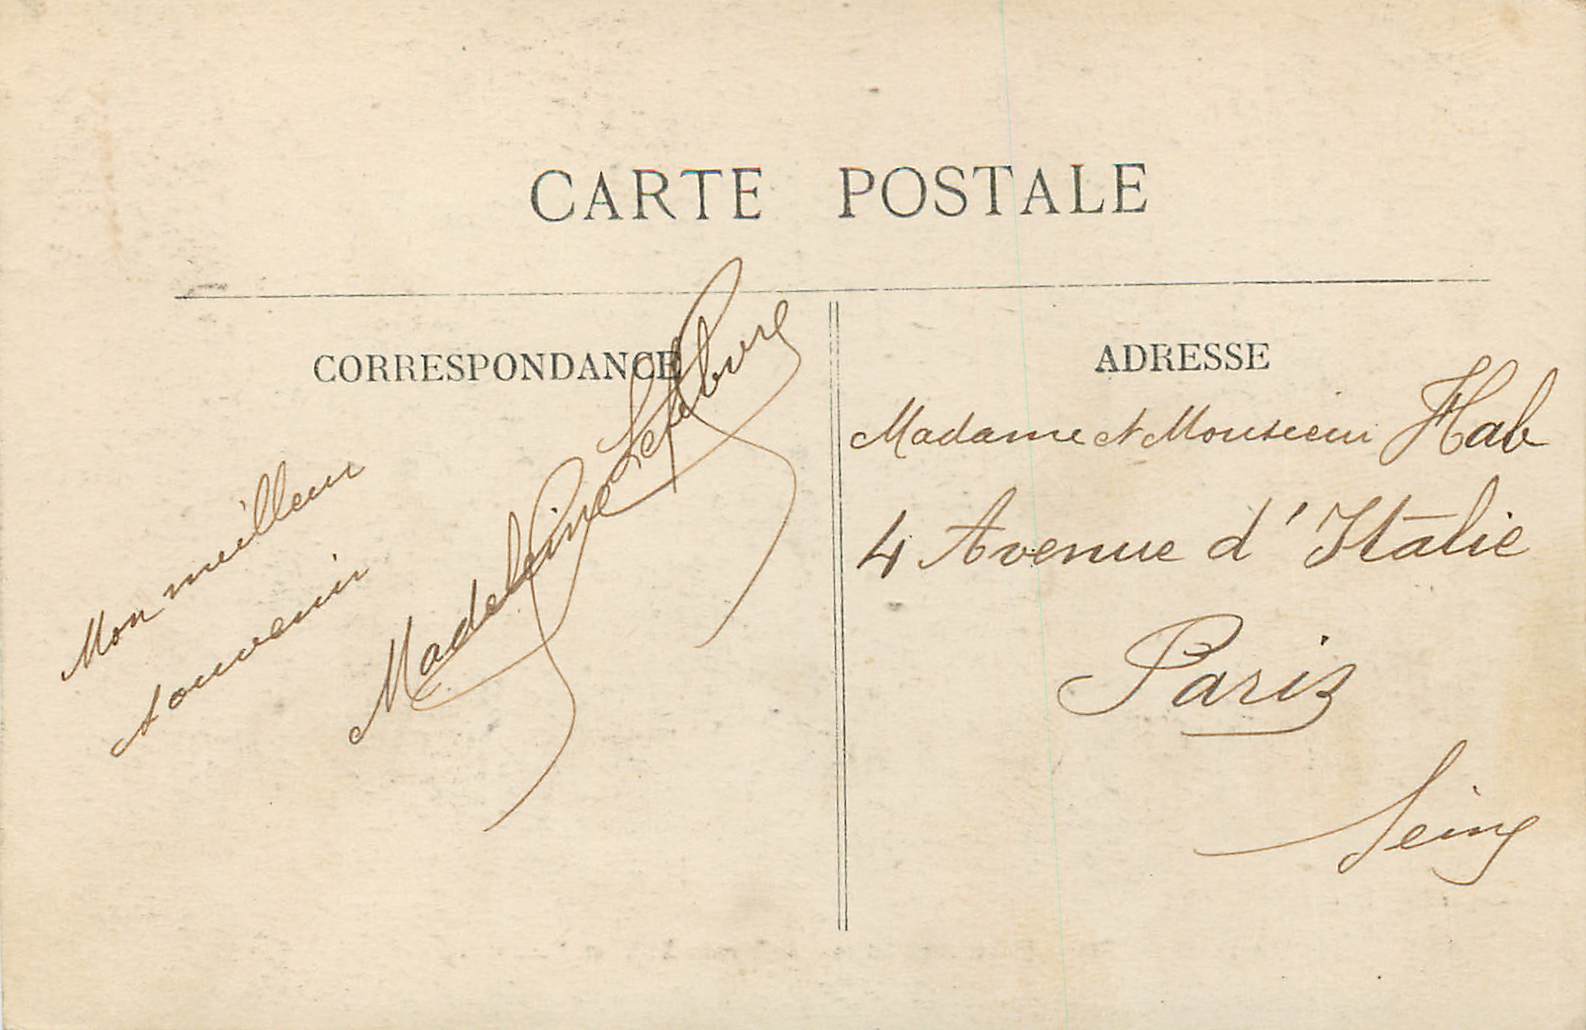 CARTE POSTALE
CORRESPONDANCE
Mon meilleur
souvenir
Madeleine Lefebvre
ADRESSE
Madame et Monsieur Hab
4 Avenue d'Italie
Paris
Seine